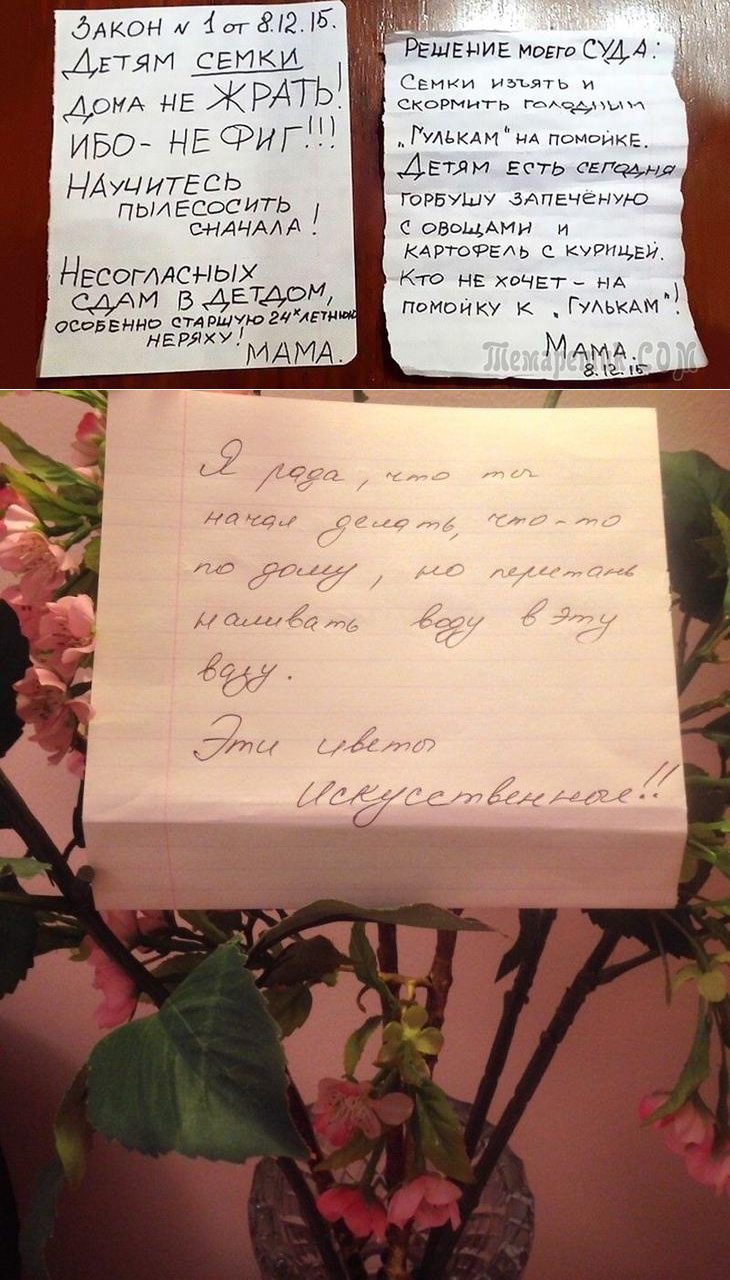 ЗАКОН N 1 от 8.12.15.
ДЕТЯМ СЕМКИ
ДОМА НЕ ЖРАТЬ!
ИБО - НЕ ФИГ!!!
НАУЧИТЕСЬ
ПЫЛЕСОСИТЬ
СНАЧАЛА!
НЕСОГЛАСНЫХ
СДАМ В ДЕТДОМ,
ОСОБЕННО СТАРШУЮ 24х ЛЕТНЮЮ
НЕРЯХУ!
МАМА.
РЕШЕНИЕ МОЕГО СУДА:
СЕМКИ ИЗЪЯТЬ И
СКОРМИТЬ ГОЛОДНЫМ
„ГУЛЬКАМ" НА ПОМОЙКЕ.
ДЕТЯМ ЕСТЬ СЕГОДНЯ
ГОРБУШУ ЗАПЕЧЁНУЮ
С ОВОЩАМИ И
КАРТОФЕЛЬ С КУРИЦЕЙ.
КТО НЕ ХОЧЕТ - НА
ПОМОЙКУ К „ГУЛЬКАМ"!
МАМА.
8.12.15.
Темаретик.COM
Я рада, что ты
начал делать, что-то
по дому, но перестань
наливать воду в эту
вазу.
Эти цветы
Искусственные!!